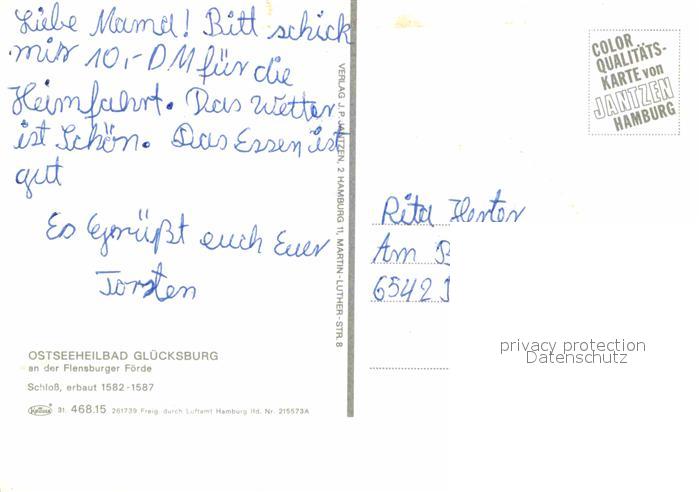 Liebe Mama! Bitt schick
mir 10,- DM für die
Heimfahrt. Das Wetter
ist Schön. Das Essen ist
gut
Es Grüßt euch Euer
Torsten
OSTSEEHEILBAD GLÜCKSBURG
an der Flensburger Förde
Schloß, erbaut 1582-1587
31. 468.15 261739 Freig. durch Luftamt Hamburg lfd. Nr. 215573A
VERLAG J. P. JANTZEN, 2 HAMBURG 11, MARTIN-LUTHER-STR. 8
COLOR
QUALITÄTS-
KARTE von
JANTZEN
HAMBURG
Rita
Am
6542
privacy protection
Datenschutz